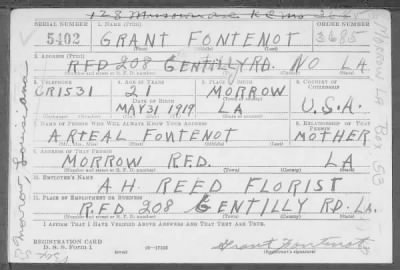 128 Missouri Ave K.C. Mo
SERIAL NUMBER 1. NAME (Print) ORDER NUMBER
5402 GRANT FONTENOT 3685
(First) (Middle) (Last)
2. ADDRESS (Print)
RFD 208 GENTILLY RD. NO LA
(Number and street or R. F. D. number) (Town) (County) (State)
3. TELEPHONE 4. AGE IN YEARS 5. PLACE OF BIRTH 6. COUNTRY OF CITIZENSHIP
CR1531 21 MORROW
DATE OF BIRTH
MAY 31 1919 LA U.S.A.
(Exchange) (No.) (Mo.) (Day) (Yr.) (State or country)
7. NAME OF PERSON WHO WILL ALWAYS KNOW YOUR ADDRESS 8. RELATIONSHIP OF THAT PERSON
ARTEAL FONTENOT MOTHER
(Mr., Mrs., Miss) (First) (Middle) (Last)
9. ADDRESS OF THAT PERSON
MORROW RFD. LA
(Number and street or R. F. D. number) (Town) (County) (State)
10. EMPLOYER'S NAME
A.H. REED FLORIST
11. PLACE OF EMPLOYMENT OR BUSINESS
RFD 208 GENTILLY RD. LA.
(Number and street or R. F. D. number) (Town) (County) (State)
I AFFIRM THAT I HAVE VERIFIED ABOVE ANSWERS AND THAT THEY ARE TRUE.
REGISTRATION CARD
D. S. S. Form 1 (over) 16-17105 Grant Fontenot
(Registrant's signature)
Morrow, Louisiana
Morrow La Box 53